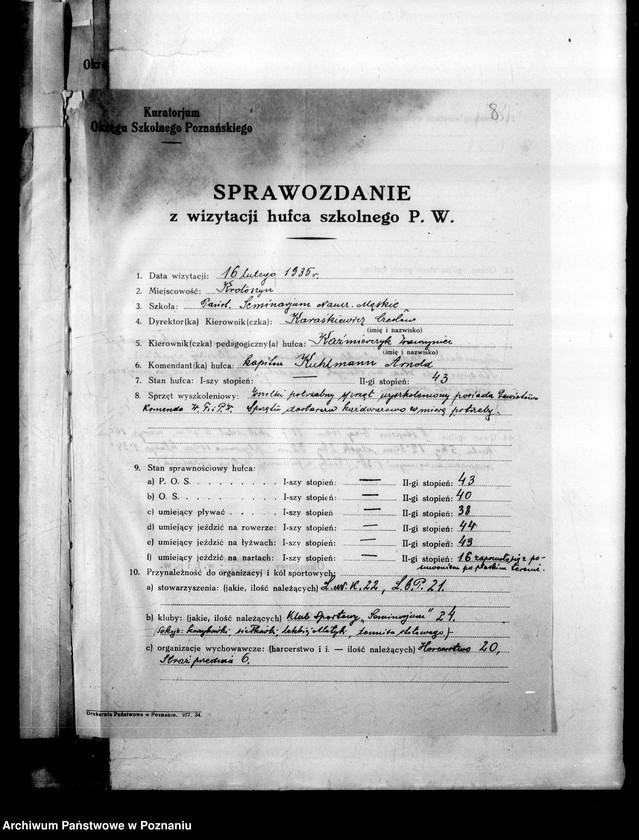 8
Kuratorjum
Okręgu Szkolnego Poznańskiego
SPRAWOZDANIE
z wizytacji hufca szkolnego P. W.
1. Data wizytacji: 16 lutego 1935 r.
2. Miejscowość: Krotoszyn
3. Szkoła: Państ. Seminarjum Naucz. Męskie
4. Dyrektor(ka) Kierownik(czka): Karaśkiewicz Czesław
(imię i nazwisko)
5. Kierownik(czka) pedagogiczny(a) hufca: Kaźmierczyk Wawrzyniec
(imię i nazwisko)
6. Komendant(ka) hufca: kapitan Kuhlmann Arnold
7. Stan hufca: I-szy stopień: — II-gi stopień: 43
8. Sprzęt wyszkoleniowy: Wszelki potrzebny sprzęt wyszkoleniowy posiada Powiatowa
Komenda W. F. i P. W. Sprzętu dostarcza każdorazowo w miarę potrzeby.
9. Stan sprawnościowy hufca:
a) P. O. S. . . . . . . . I-szy stopień: — II-gi stopień: 43
b) O. S. . . . . . . . . I-szy stopień: — II-gi stopień: 40
c) umiejący pływać . . . . I-szy stopień — II-gi stopień: 38
d) umiejący jeździć na rowerze: I-szy stopień: — II-gi stopień: 44
e) umiejący jeździć na łyżwach: I-szy stopień: — II-gi stopień: 43
f) umiejący jeździć na nartach: I-szy stopień: — II-gi stopień: 16 z
po płaskim terenie.
10. Przynależność do organizacyj i kół sportowych:
a) stowarzyszenia: (jakie, ilość należących) L. M. K. 22, L.O.P. 21.
b) kluby: (jakie, ilość należących) Klub Sportowy „Seminarjum" 24.
(Sekcje: koszykówki, siatkówki, lekkiej atletyki, tennisa stołowego.)
c) organizacje wychowawcze: (harcerstwo i i. — ilość należących) Harcerstwo 20,
Straż przednia 6.
Drukarnia Państwowa w Poznaniu. 977. 34.
Archiwum Państwowe w Poznaniu